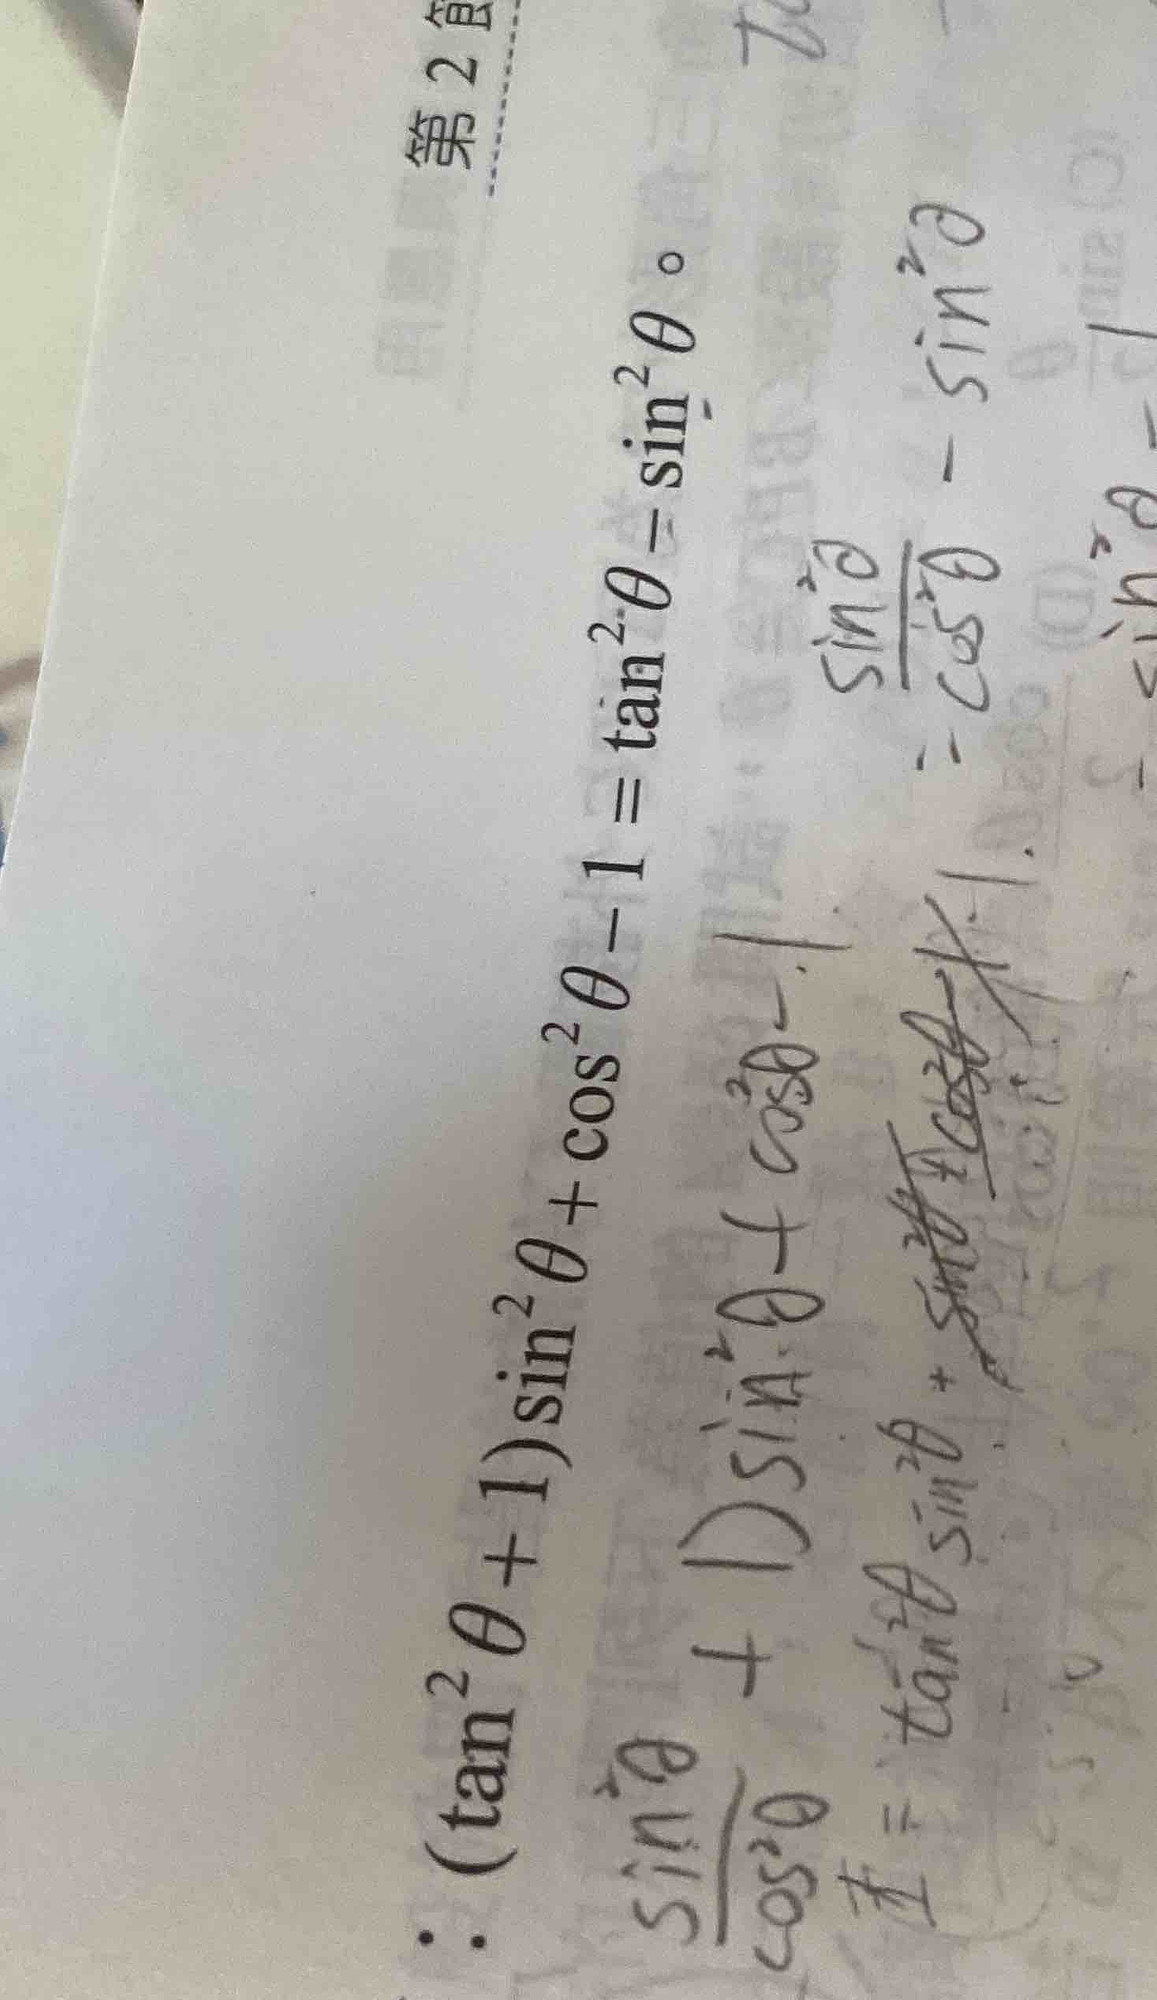 第2
: (tan²θ+1)sin²θ+cos²θ−1=tan²θ−sin²θ。
sin²θ/cos²θ + 1)sin²θ + cos²θ − 1
= sin²θ/cos²θ − sin²θ
左 = tan²θ sin²θ + sin²θ + cos²θ − 1.
sin²θ −